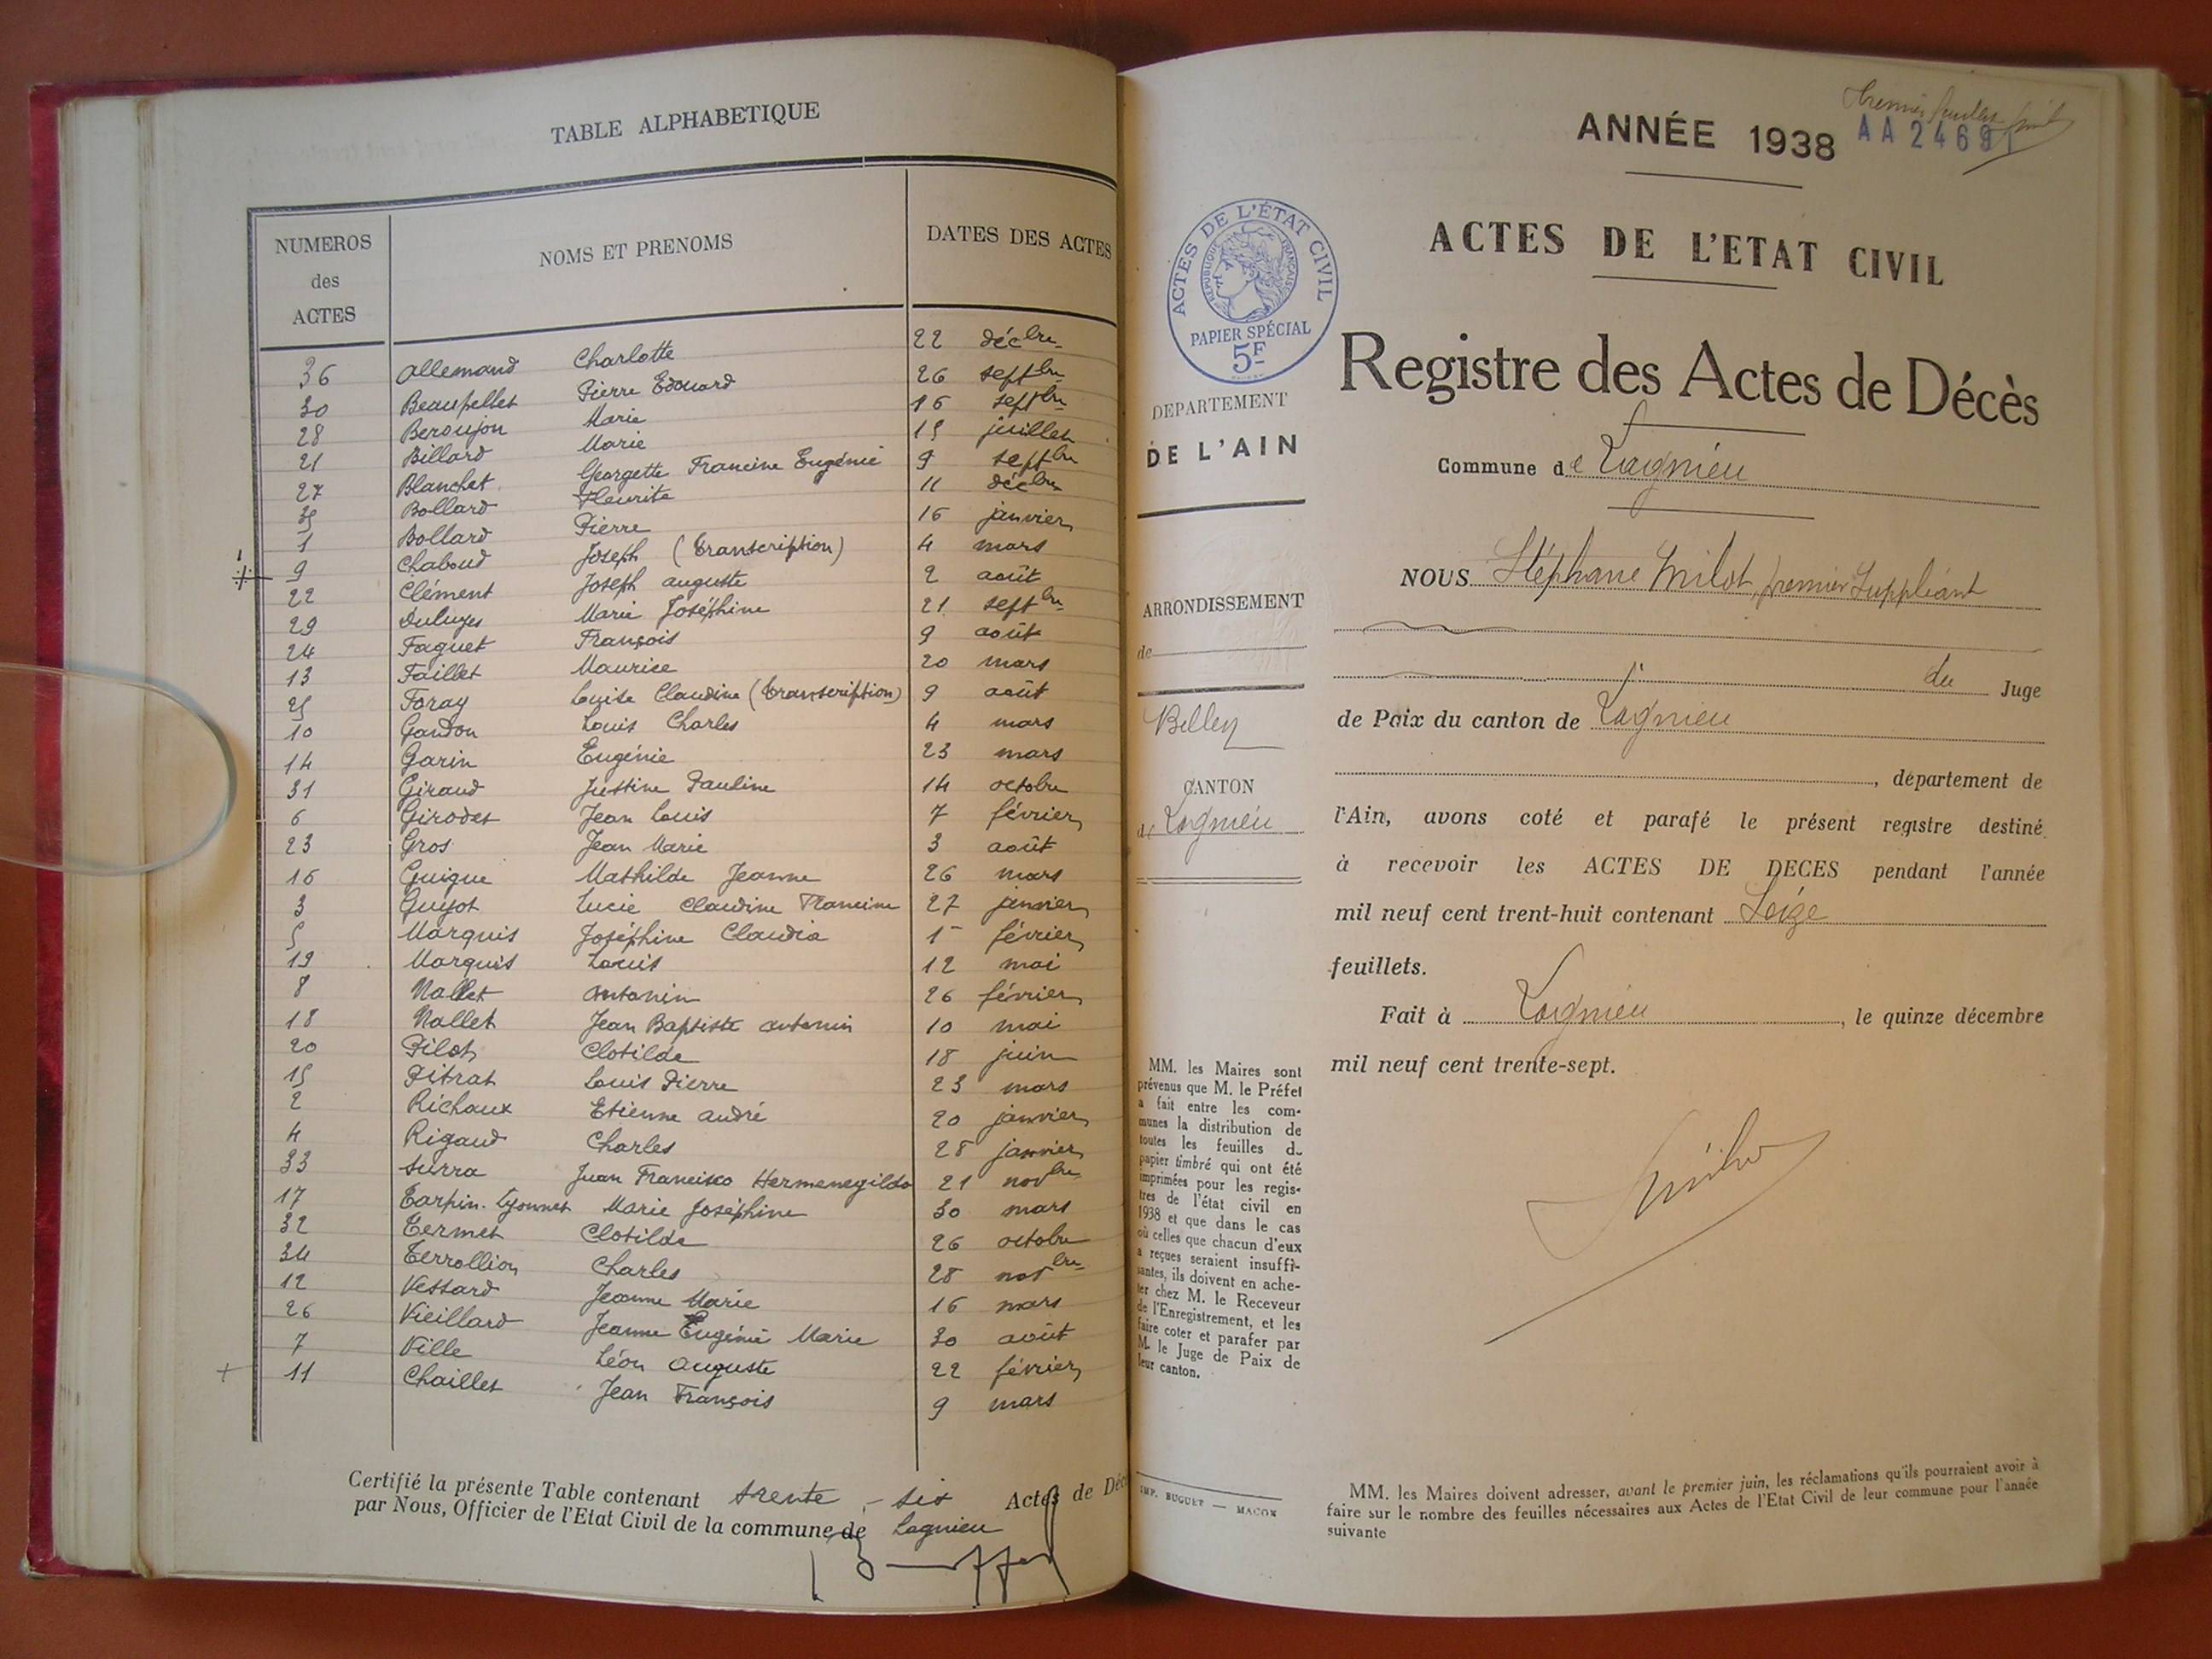 TABLE ALPHABETIQUE
NUMEROS des ACTES
NOMS ET PRENOMS
DATES DES ACTES
36 Allemand Charlotte 22 décbre
30 Beaupellet Pierre Edouard 26 septbre
28 Beroujon Marie 16 septbre
21 Billard Marie 15 juillet
27 Blanchet Georgette Francine Eugénie 9 septbre
35 Bollard Fleurite 11 décbre
1 Bollard Pierre 16 janvier
9 Chaboud Joseph (transcription) 4 mars
22 Clément Joseph Auguste 2 août
29 Duluyes Marie Joséphine 21 septbre
24 Faguet François 9 août
13 Faillet Maurice 20 mars
25 Foray Louise Claudine (transcription) 9 août
10 Gandon Louis Charles 4 mars
14 Garin Eugénie 23 mars
31 Giraud Justine Pauline 14 octobre
6 Girodet Jean Louis 7 février
23 Gros Jean Marie 3 août
16 Guigue Mathilde Jeanne 26 mars
3 Guyot Lucie Claudine Francine 27 janvier
5 Marquis Joséphine Claudia 1er février
19 Marquis Louis 12 mai
8 Nallet Antonin 26 février
18 Nallet Jean Baptiste Antonin 10 mai
20 Pilot Clotilde 18 juin
15 Pitrat Louis Pierre 23 mars
2 Richaux Etienne André 20 janvier
4 Rigaud Charles 28 janvier
33 Surra Juan Francisco Hermenegildo 21 novbre
17 Tarpin-Lyonnet Marie Joséphine 30 mars
32 Termet Clotilde 26 octobre
34 Terrollion Charles 28 novbre
12 Vessard Jeanne Marie 16 mars
26 Vieillard Jeanne Eugénie Marie 30 août
7 Ville Léon Auguste 22 février
11 Chaillet Jean François 9 mars
Certifié la présente Table contenant trente-six Actes de Déc
par Nous, Officier de l'Etat Civil de la commune de Lagnieu
ANNÉE 1938
AA 24691
ACTES DE L'ETAT CIVIL
ACTES DE L'ÉTAT CIVIL
RÉPUBLIQUE FRANÇAISE
PAPIER SPÉCIAL
5F
Registre des Actes de Décès
DEPARTEMENT
DE L'AIN
Commune de Lagnieu
NOUS Stéphane Milot, premier Suppléant
ARRONDISSEMENT
de
Belley
du Juge
de Paix du canton de Lagnieu
CANTON
de Lagnieu
, département de
l'Ain, avons coté et parafé le présent registre destiné
à recevoir les ACTES DE DECES pendant l'année
mil neuf cent trent-huit contenant Seize
feuillets.
Fait à Lagnieu, le quinze décembre
mil neuf cent trente-sept.
MM. les Maires sont
prévenus que M. le Préfet
a fait entre les com-
munes la distribution de
toutes les feuilles du
papier timbré qui ont été
imprimées pour les regis-
tres de l'état civil en
1938 et que dans le cas
où celles que chacun d'eux
a reçues seraient insuffi-
santes, ils doivent en ache-
ter chez M. le Receveur
de l'Enregistrement, et les
faire coter et parafer par
M. le Juge de Paix de
leur canton.
IMP. BUGUET — MACON
MM. les Maires doivent adresser, avant le premier juin, les réclamations qu'ils pourraient avoir à
faire sur le nombre des feuilles nécessaires aux Actes de l'Etat Civil de leur commune pour l'année
suivante